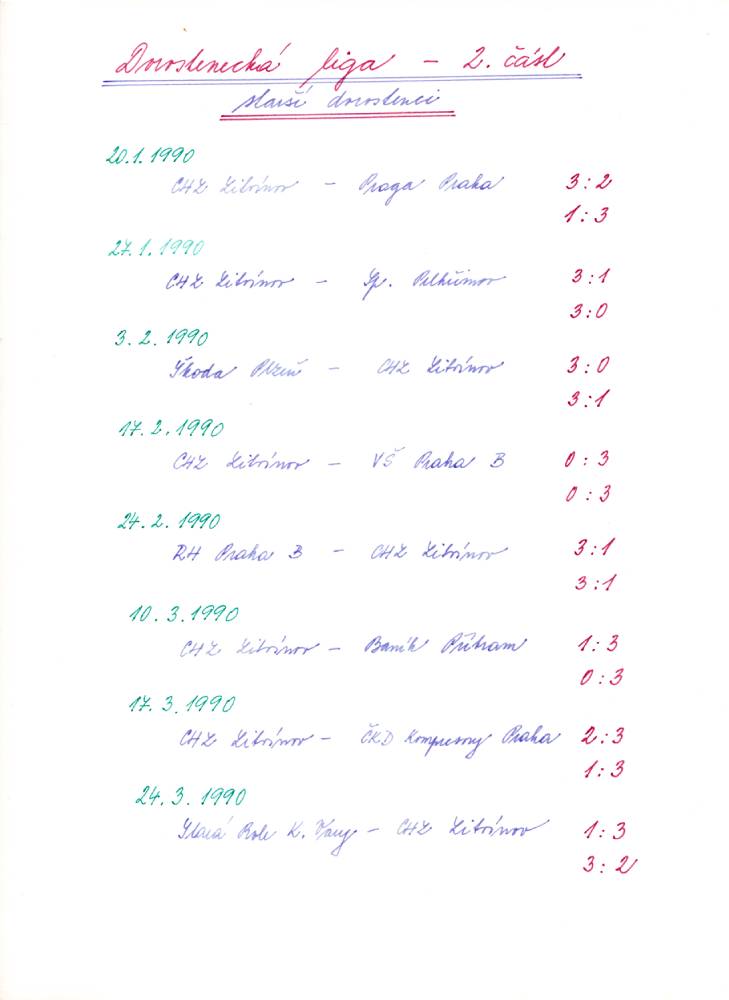 Dorostenecká liga - 2. část
starší dorostenci
20.1.1990
CHZ Litvínov - Praga Praha 3:2
1:3
27.1.1990
CHZ Litvínov - Sp. Pelhřimov 3:1
3:0
3.2.1990
Škoda Plzeň - CHZ Litvínov 3:0
3:1
17.2.1990
CHZ Litvínov - VŠ Praha B 0:3
0:3
24.2.1990
RH Praha B - CHZ Litvínov 3:1
3:1
10.3.1990
CHZ Litvínov - Baník Příbram 1:3
0:3
17.3.1990
CHZ Litvínov - ČKD Kompresory Praha 2:3
1:3
24.3.1990
Stará Role K. Vary - CHZ Litvínov 1:3
3:2